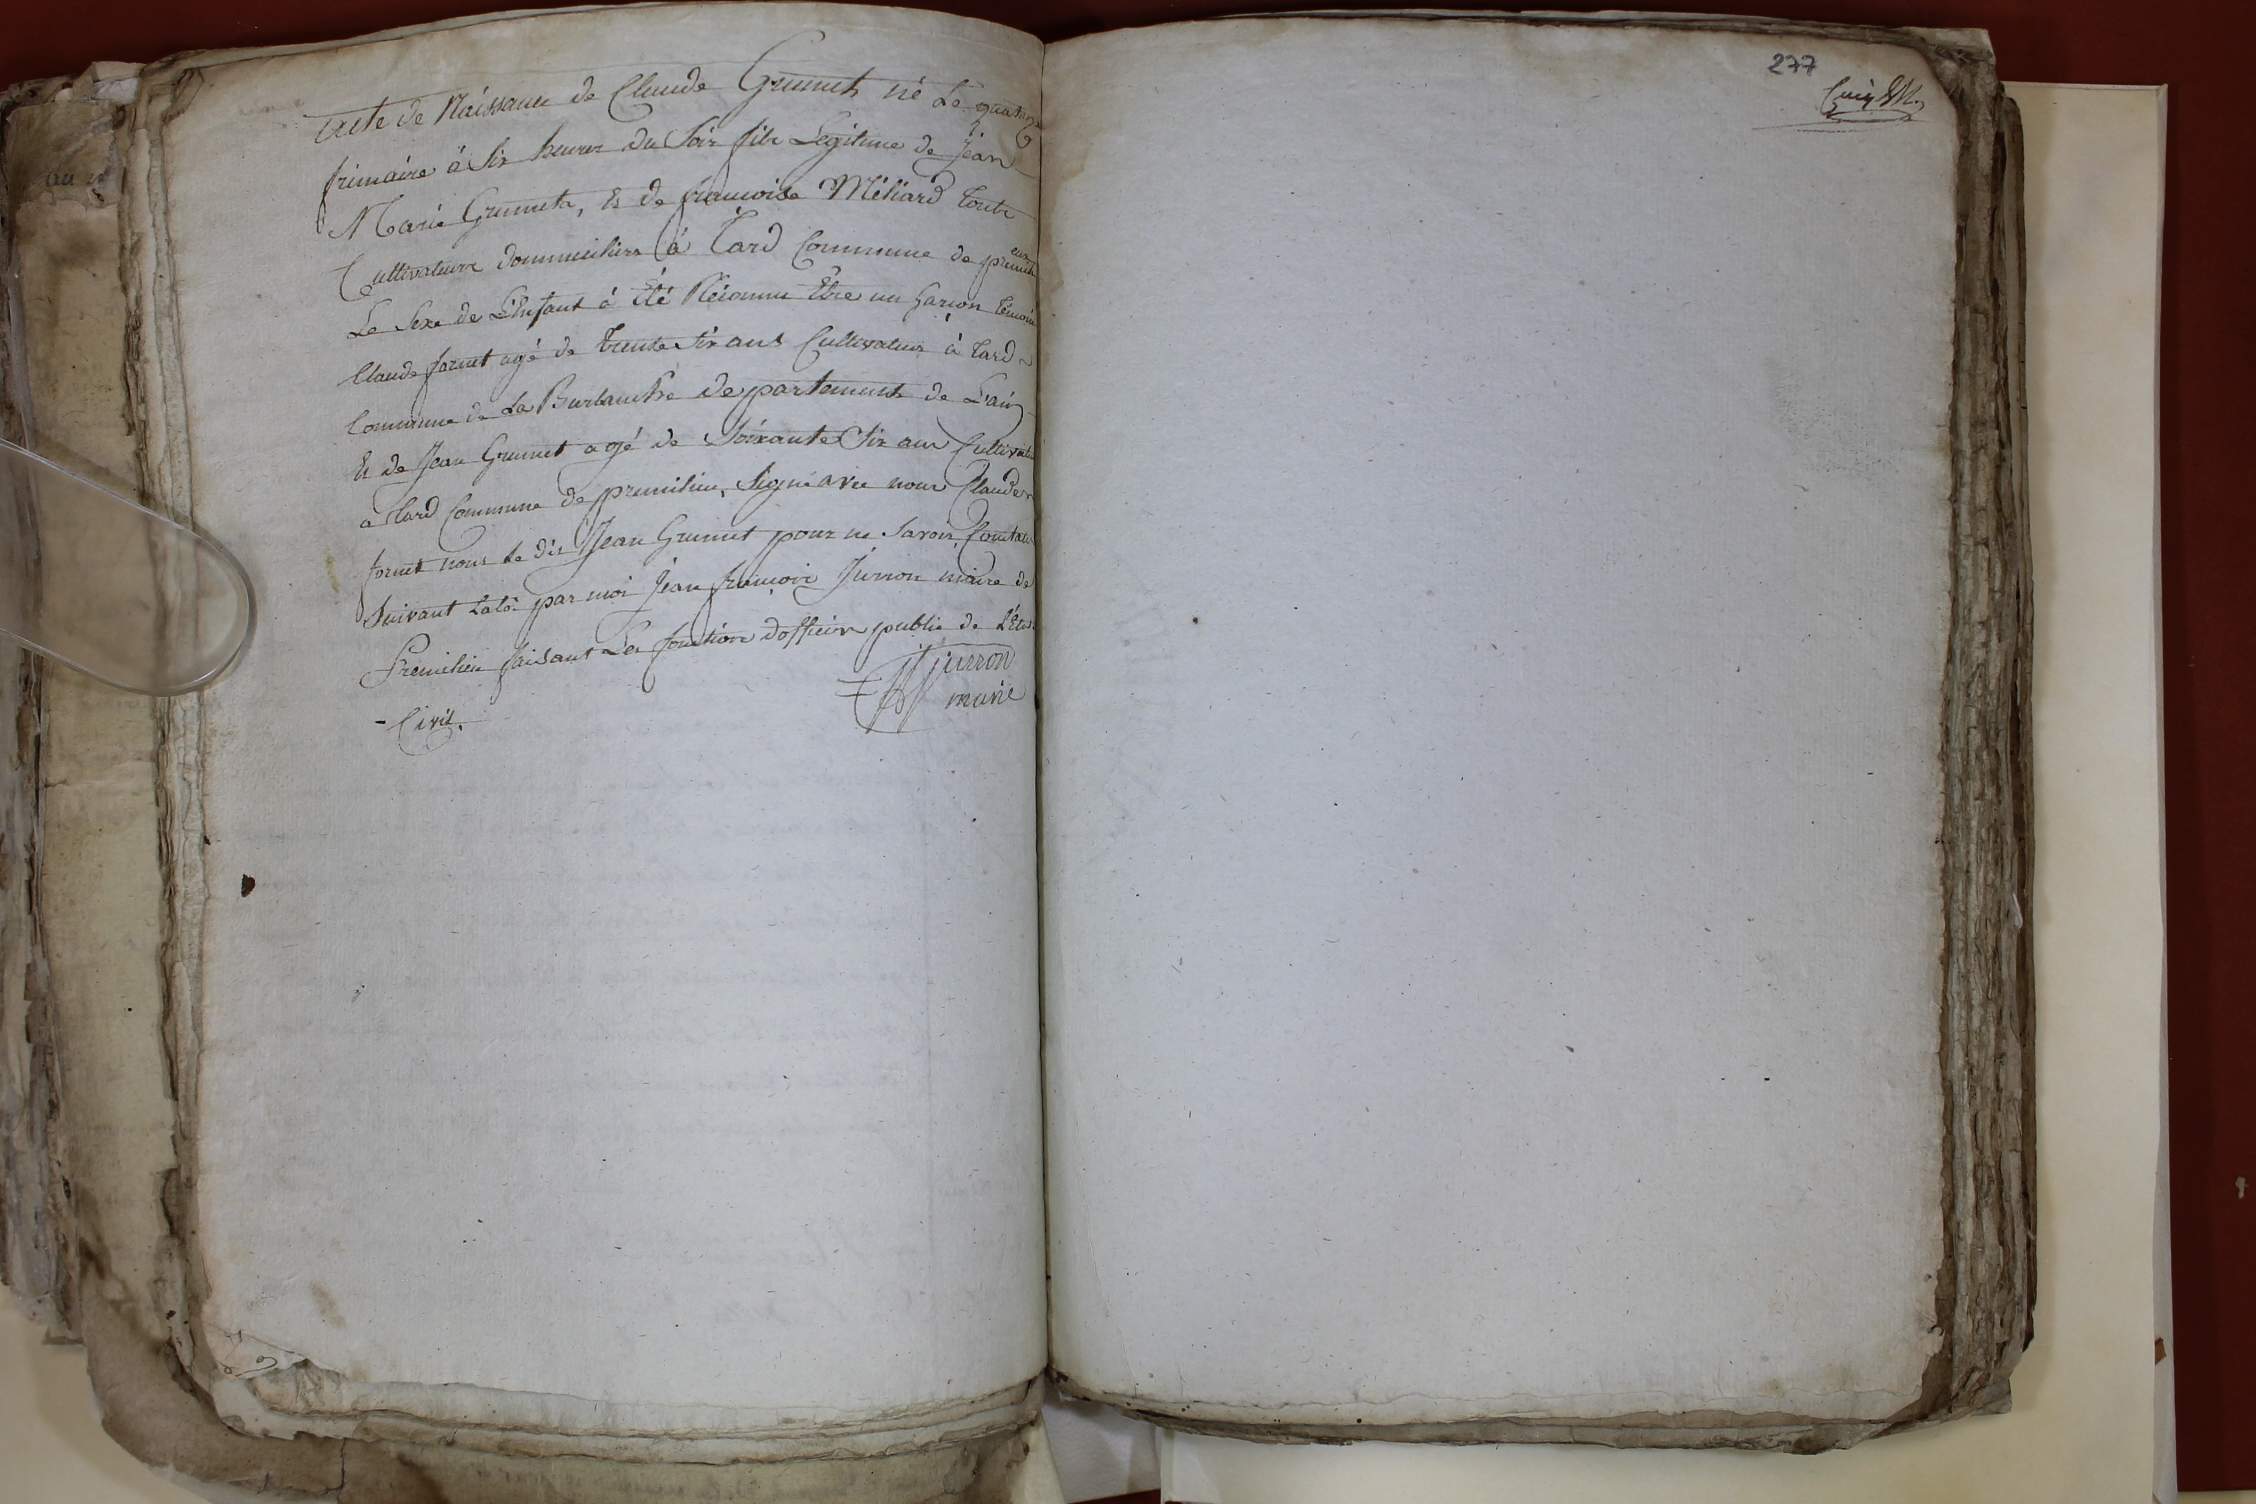 acte de Naissance de Claude Grumet né Le quatorze
frimaire à Six heures du Soir fils Legitime de Jean
Marie Grumet, Et de francoise Méhard touts
Cultivateurs dommicilies à Tard Commune de premi
Le Sexe de L'Enfant à Eté Réconnu Etre un Garcon témoin
Claude fornet agé de trente Six ans Cultivateur à Tard
Commune de La Burbanche departement de L'ain
Et de Jean Grumet agé de Soixante Six ans Cultivate
a Tard Commune de premilieu, Signé avec nous Claude
fornet nous le dis Jean Grumet pour ne Savoir, Constaté
Suivant Laloi par moi Jean francois Jurron maire de
Premilieu faisant Les fonction dofficier public de L'Etat
- Civil.
Jurron
maire
277